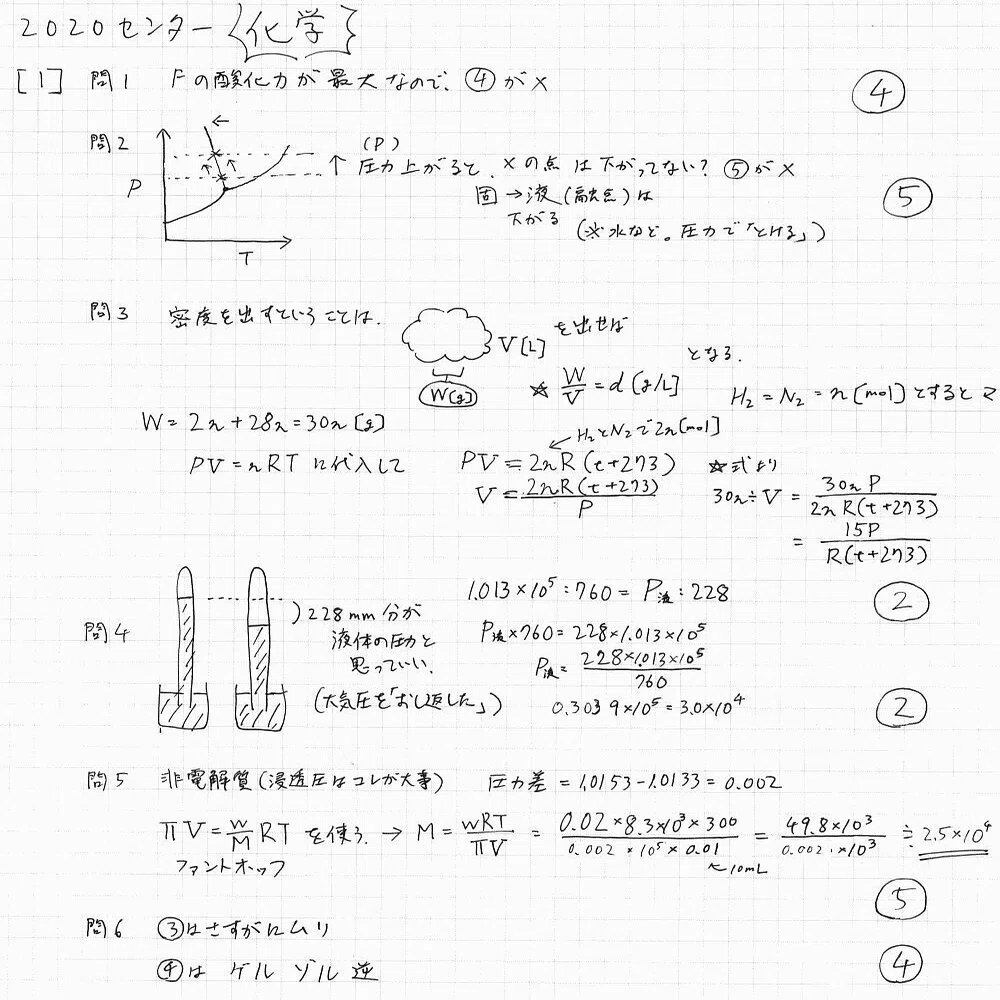 2020センター{化学}
[1] 問1 Fの酸化力が最大なので、④が×
④
問2
P
T
(P)
↑圧力上がると、×の点は下がってない?⑤が×
固→液(融点)は
下がる
(※水など。圧力で「とける」)
⑤
問3 密度を出すということは、
V[L]
W[g]
を出せば
☆ W/V = d [g/L]
となる.
H₂ = N₂ = n [mol] とすると
W = 2n + 28n = 30n [g]
H₂とN₂で2n[mol]
PV = nRT に代入して
PV = 2nR(t+273)
V = 2nR(t+273)/P
☆式より
30n÷V = 30nP/2nR(t+273)
= 15P/R(t+273)
②
問4
)228mm分が
液体の圧力と
思っていい.
(大気圧を「おし返した」)
1.013×10⁵:760 = P液:228
P液×760 = 228×1.013×10⁵
P液 = 228×1.013×10⁵/760
0.3039×10⁵ = 3.0×10⁴
②
問5 非電解質(浸透圧はコレが大事) 圧力差 = 1.0153-1.0133 = 0.002
πV = w/M RT を使う. → M = wRT/πV = 0.02×8.3×10³×300/0.002×10⁵×0.01 = 49.8×10³/0.002×10³ ≒ 2.5×10⁴
ファントホッフ
↖10mL
⑤
問6 ③はさすがにムリ
④は ゲル ゾル 逆
④